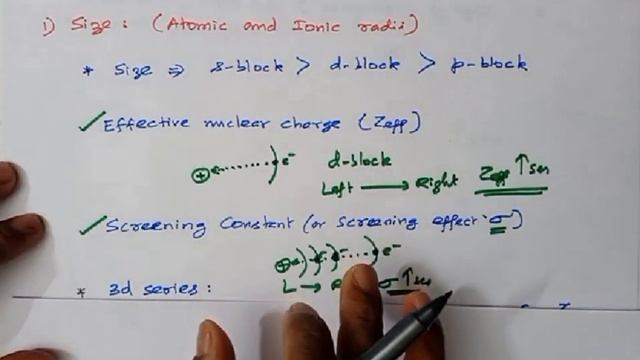 i) Size: (Atomic and Ionic radii)
* Size ⇒ s-block > d-block > p-block
✓ Effective nuclear charge (Zeff)
⊕ e⁻ d-block
Left → Right Zeff ↑ses
✓ Screening Constant (or screening effect 'σ')
⊕ e⁻
L → σ ↑ses
* 3d series: